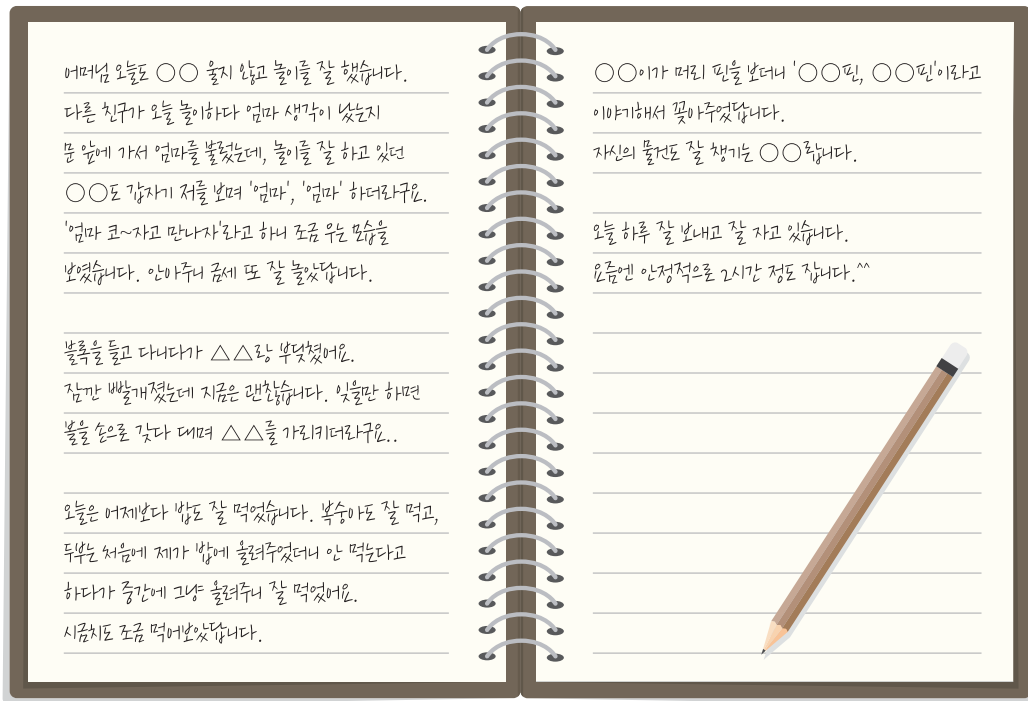 어머님 오늘도 ○○ 울지 않고 놀이를 잘 했습니다.
다른 친구가 오늘 놀이하다 엄마 생각이 났는지
문 앞에 가서 엄마를 불렀는데, 놀이를 잘 하고 있던
○○도 갑자기 저를 보며 '엄마', '엄마' 하더라구요.
'엄마 코~자고 만나자'라고 하니 조금 우는 모습을
보였습니다. 안아주니 금세 또 잘 놀았답니다.
블록을 들고 다니다가 △△랑 부딪쳤어요.
잠깐 빨개졌는데 지금은 괜찮습니다. 잊을만 하면
볼을 손으로 갖다 대며 △△를 가리키더라구요..
오늘은 어제보다 밥도 잘 먹었습니다. 복숭아도 잘 먹고,
두부는 처음에 제가 밥에 올려주었더니 안 먹는다고
하다가 중간에 그냥 올려주니 잘 먹었어요.
시금치도 조금 먹어보았답니다.
○○이가 머리 핀을 보더니 '○○핀, ○○핀'이라고
이야기해서 꽂아주었답니다.
자신의 물건도 잘 챙기는 ○○랍니다.
오늘 하루 잘 보내고 잘 자고 있습니다.
요즘엔 안정적으로 2시간 정도 잡니다.^^